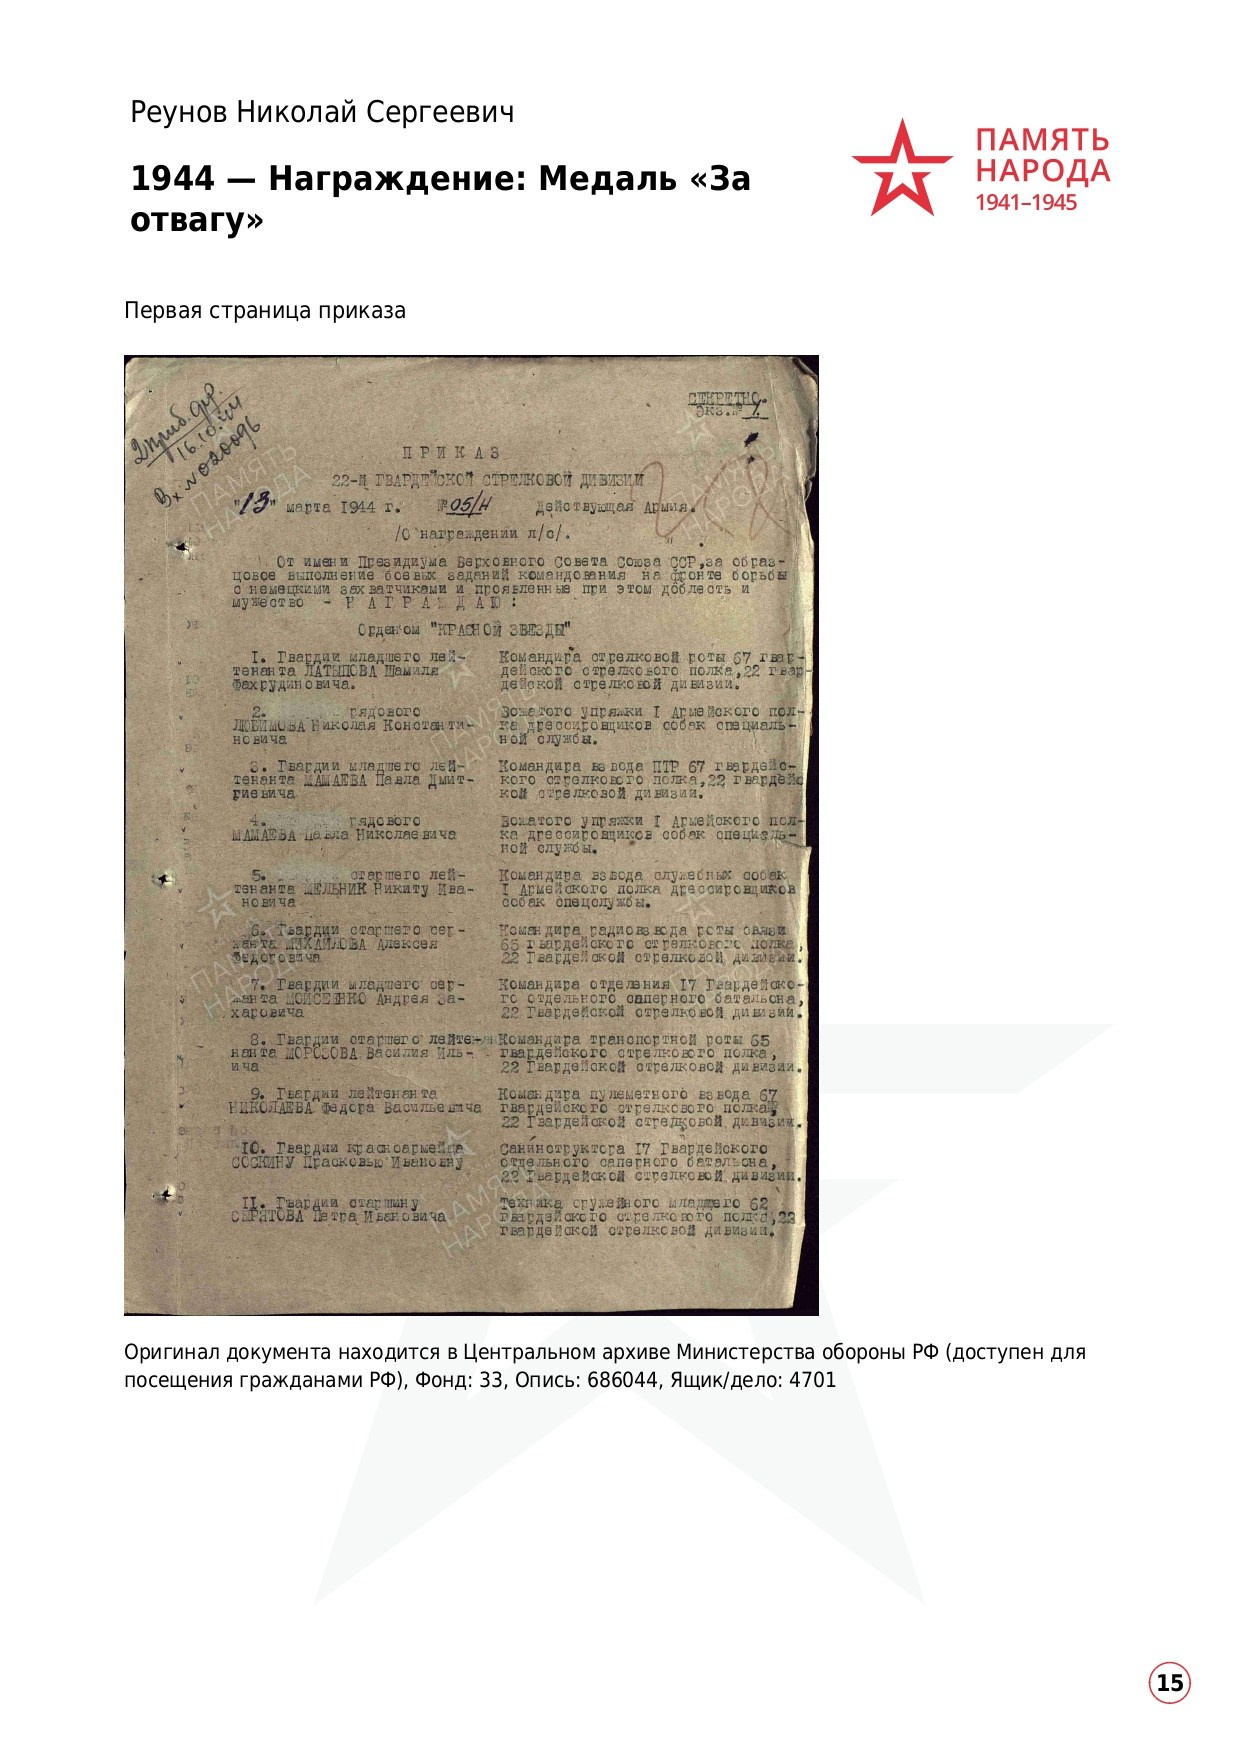 Реунов Николай Сергеевич
1944 — Награждение: Медаль «За
отвагу»
ПАМЯТЬ
НАРОДА
1941–1945
Первая страница приказа
2 приб. фр.
16.10.44
Вх №020096
СЕКРЕТНО.
Экз.№ 1.
ПРИКАЗ
22-Й ГВАРДЕЙСКОЙ СТРЕЛКОВОЙ ДИВИЗИИ
"13" марта 1944 г. №05/Н Действующая Армия.
/О награждении л/с/.
От имени Президиума Верховного Совета Союза ССР,за образ-
цовое выполнение боевых заданий командования на фронте борьбы
с немецкими захватчиками и проявленные при этом доблесть и
мужество - НАГРАЖДАЮ:
Орденом "КРАСНОЙ ЗВЕЗДЫ"
I. Гвардии младшего лей- Командира стрелковой роты 67 гвар-
тенанта ЛАТЫПОВА Шамиля дейского стрелкового полка,22 гвар-
Фахрудиновича. дейской стрелковой дивизии.
2. рядового Вожатого упряжки I Армейского пол-
ЛЮБИМОВА Николая Константи- ка дрессировщиков собак специаль-
новича ной службы.
3. Гвардии младшего лей- Командира взвода ПТР 67 гвардейс-
тенанта МАМАЕВА Павла Дмит- кого стрелкового полка,22 гвардейс
риевича кой стрелковой дивизии.
4. рядового Вожатого упряжки I Армейского пол-
МАМАЕВА Павла Николаевича ка дрессировщиков собак специаль-
ной службы.
5. старшего лей- Командира взвода служебных собак
тенанта МЕЛЬНИК Никиту Ива- I Армейского полка дрессировщиков
новича собак спецслужбы.
6. Гвардии старшего сер- Командира радиовзвода роты связи
жанта МИХАЙЛОВА Алексея 65 гвардейского стрелкового полка,
Федоровича 22 Гвардейской стрелковой дивизии.
7. Гвардии младшего сер- Командира отделения I7 Гвардейско-
жанта МОИСЕЕНКО Андрея За- го отдельного саперного батальона,
харовича 22 Гвардейской стрелковой дивизии.
8. Гвардии старшего лейте- Командира транспортной роты 65
нанта МОРОЗОВА Василия Иль- гвардейского стрелкового полка,
ича 22 Гвардейской стрелковой дивизии.
9. Гвардии лейтенанта Командира пулеметного взвода 67
НИКОЛАЕВА Федора Васильевича гвардейского стрелкового полка,
22 Гвардейской стрелковой дивизии.
IO. Гвардии красноармейца Санинструктора I7 Гвардейского
СОСКИНУ Прасковью Ивановну отдельного саперного батальона,
22 Гвардейской стрелковой дивизии.
II. Гвардии старшину Техника оружейного младшего 62
СЫРЯТОВА Петра Ивановича гвардейского стрелкового полка,22
гвардейской стрелковой дивизии.
Оригинал документа находится в Центральном архиве Министерства обороны РФ (доступен для
посещения гражданами РФ), Фонд: 33, Опись: 686044, Ящик/дело: 4701
15